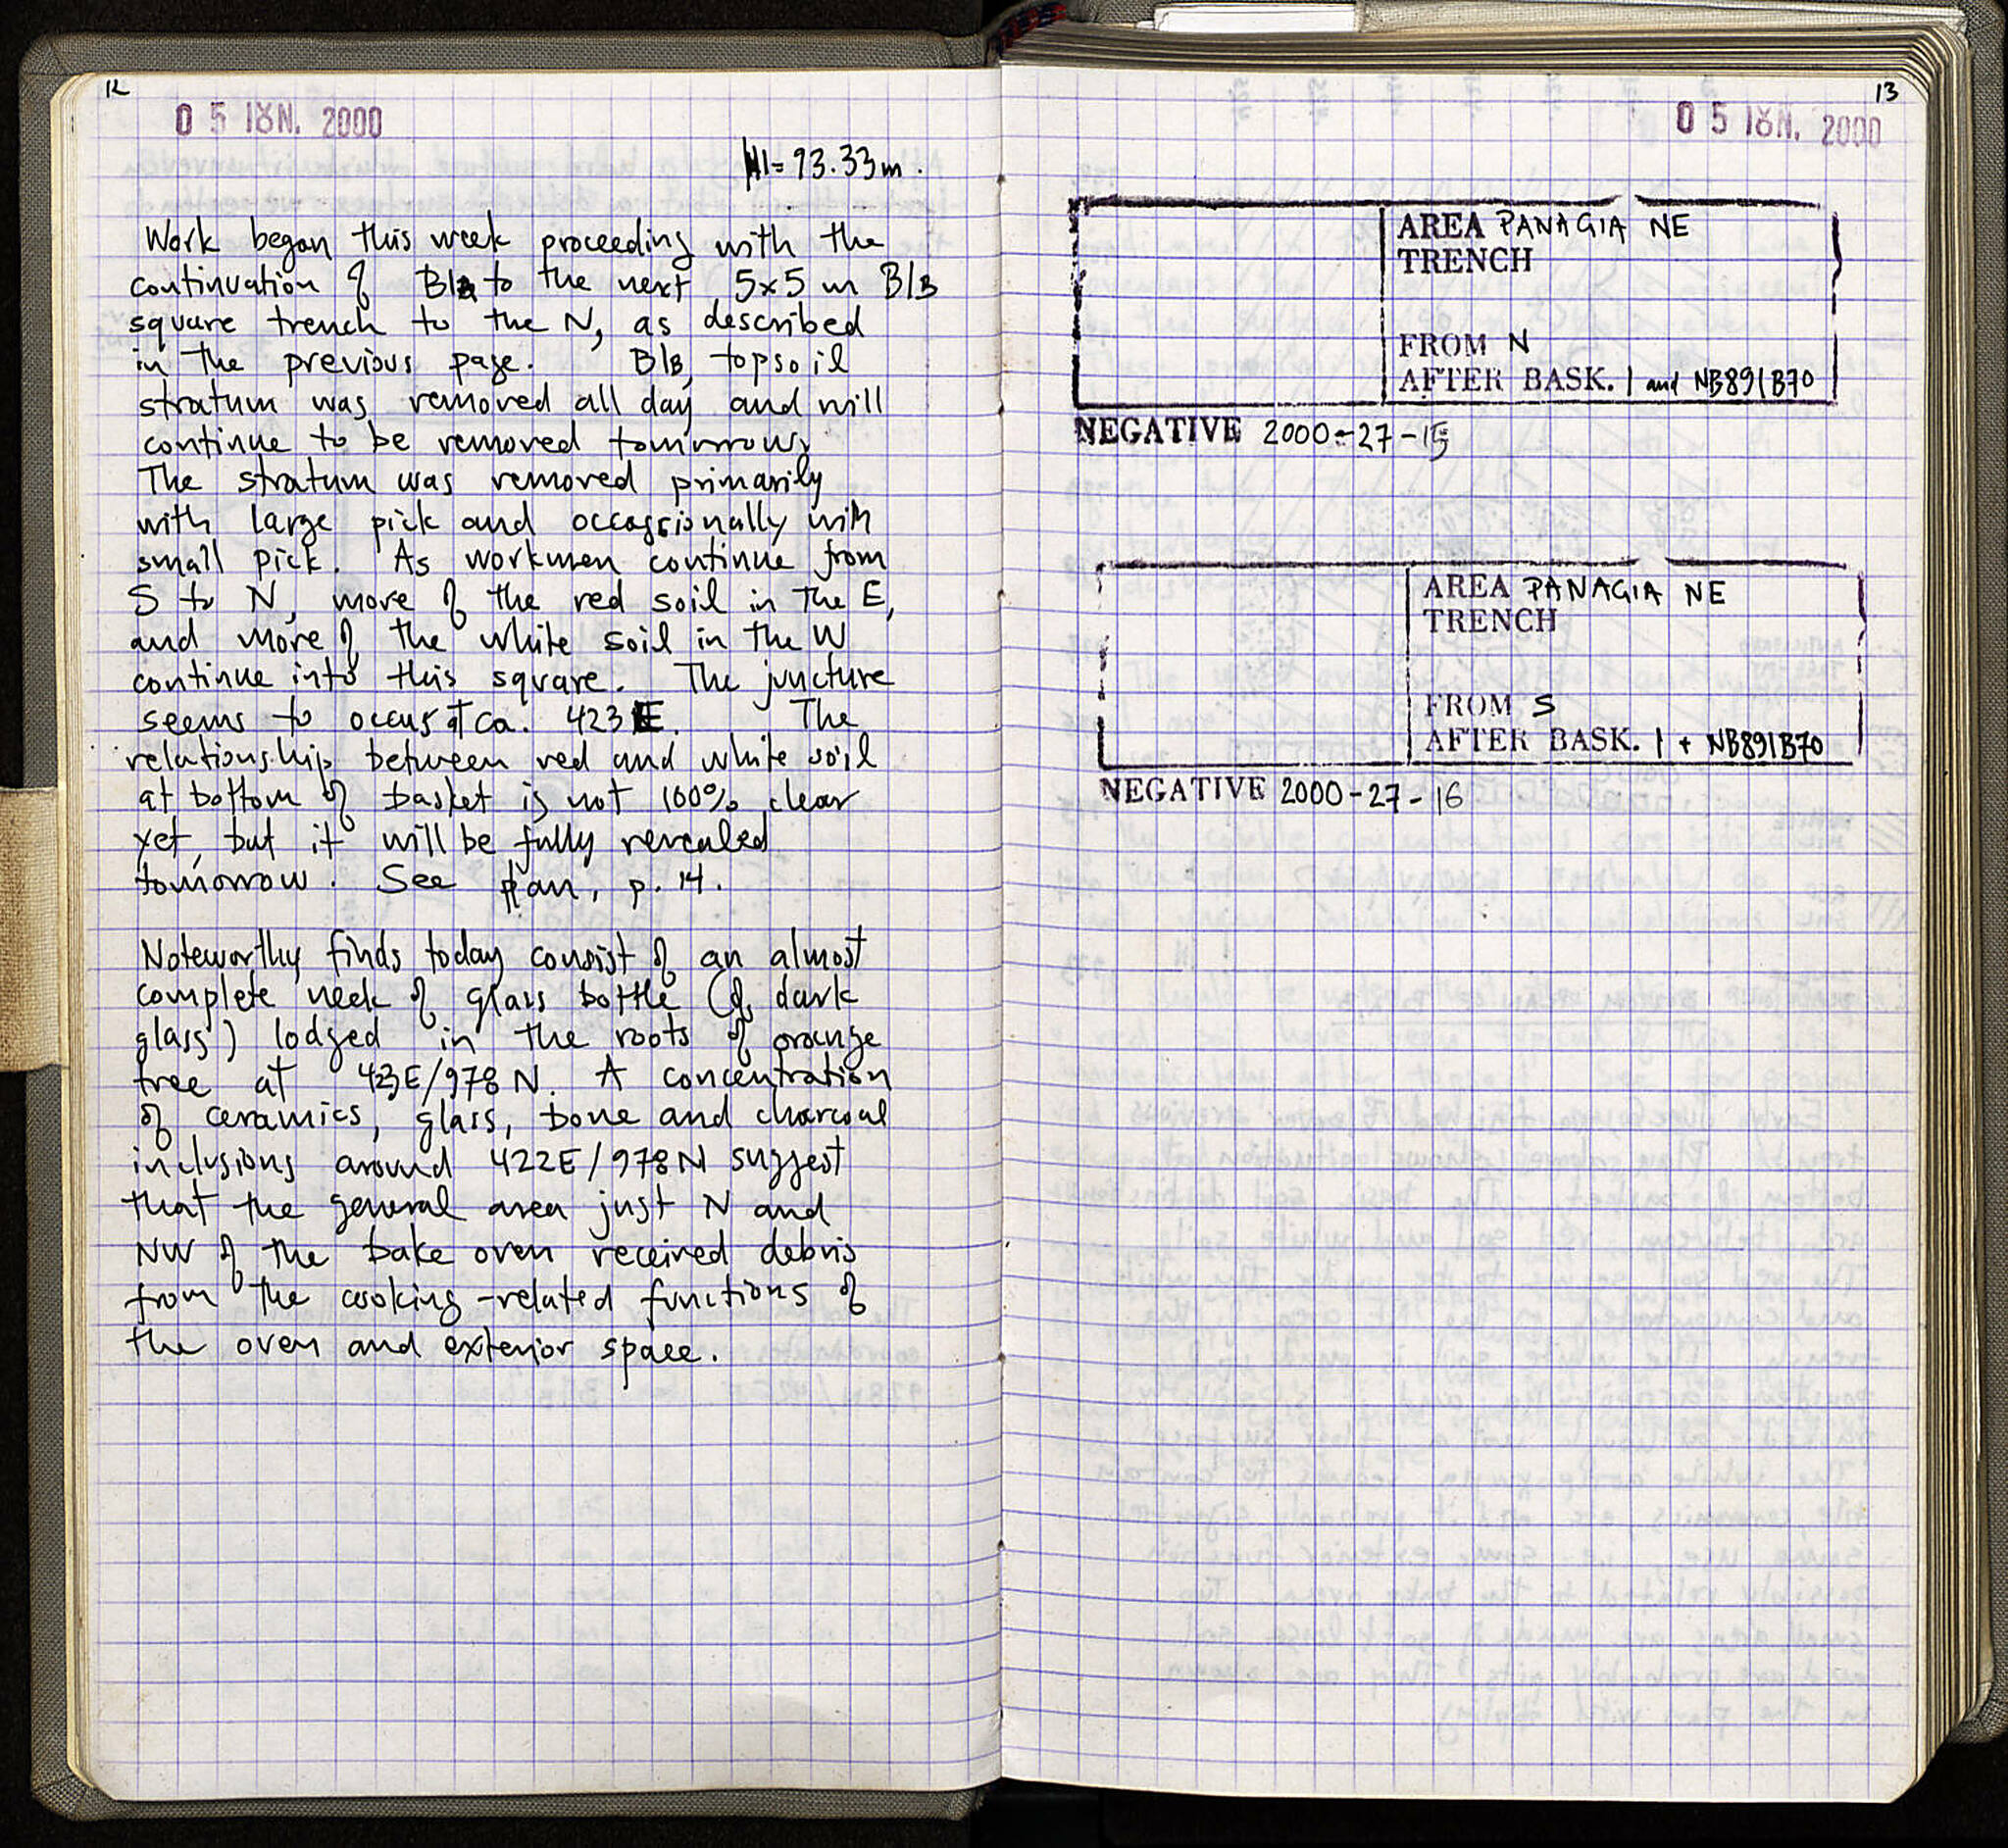 12
05 ΙȣΝ. 2000
HI= 93.33m.
Work began this week proceeding with the
continuation of B1A to the next 5x5 m B1B
square trench to the N, as described
in the previous page. B1B, topsoil
stratum was removed all day and will
continue to be removed tomorrow.
The stratum was removed primarily
with large pick and occassionally with
small pick. As workmen continue from
S to N, more of the red soil in the E,
and more of the white soil in the W
continue into this square. The juncture
seems to occur at ca. 423 E. The
relationship between red and white soil
at bottom of basket is not 100% clear
yet, but it will be fully revealed
tomorrow. See plan, p. 14.
Noteworthy finds today consist of an almost
complete neck of glass bottle (of dark
glass) lodged in the roots of orange
tree at 423E/978 N. A concentration
of ceramics, glass, bone and charcoal
inclusions around 422E/978N suggest
that the general area just N and
NW of the bake oven received debris
from the cooking-related functions of
the oven and exterior space.
13
05 ΙȣΝ. 2000
AREA PANAGIA NE
TRENCH
FROM N
AFTER BASK. 1 and NB891B70
NEGATIVE 2000-27-15
AREA PANAGIA NE
TRENCH
FROM S
AFTER BASK. 1 + NB891B70
NEGATIVE 2000-27-16